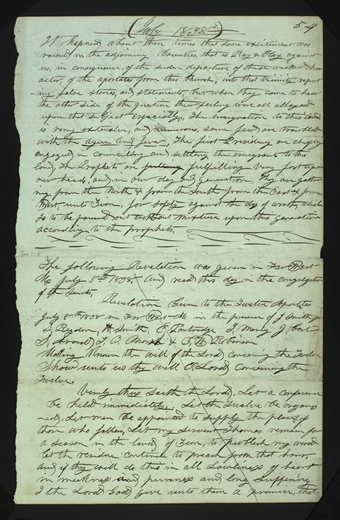 July 1838
54
It happened about these times that some excitement was
raised in the adjoining Counties, that is Ray & Clay against
us, in consequence, of the sudden departure of these wicked char-
acters, of the apostates from this Church, into that vicinity report
ing false stories, and statements, but when they come to hear
the other side of the question their feeling were all allayed
upon that subject especially, The emigration to this land
is very extensive, and numerous, some few are troubled
with the ague and fever. The first Presidency are chiefly
engaged in counciling and settling the emigrants to this
land, The prophecies are fulfilling very fast upon
our heads, and in our day and generation. They are gather
ing from the North, & from the South from the East & from
West, unto Zion, for safety against the day of wrath which
is to be poured out without mixture upon this generation
according to the prophets.
The following Revelation was given in Far West
Mo July 8th 1838, and read this day in the congregation
of the Saints,
Revelation Given to the Twelve Apostles
July 8 1838 in Far West Mo in the presence of J Smith Jr
S, Rigdon, H. Smith, E, Partridge, I, Morly, J, Carter,
S, Avard, T, B, Marsh & G, W, Robinson
Making known the will of the Lord concerning the Twelve
Show unto us thy will O, Lord concerning the
Twelve,
Verily thus saith the Lord, Let a conference
be held immediately, Let the Twelve be organi
zed, Let men be appointed to supply the place of
those who fallen, Let my Servant Thomas remain for
a season in the land of Zion, to publish my word
let the residue continue to preach from that hour
and if they will do this in all Lowliness of heart
in meekness and pureness and long suffering
I the Lord God give unto them a promise, that